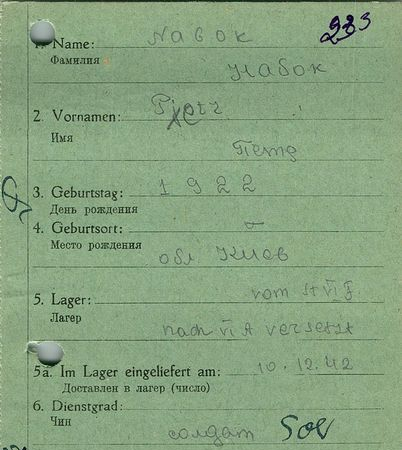 283
1. Name: Nabok
Фамилия Набок
2. Vornamen: Pjotr
Имя
Петр
3. Geburtstag: 1922
День рождения
4. Geburtsort: –
Место рождения
обл Киев
5. Lager: vom St VI F
Лагер
nach VI A versetzt
5a. Im Lager eingeliefert am: 10.12.42
Доставлен в лагер (число)
6. Dienstgrad:
Чин
солдат Sol